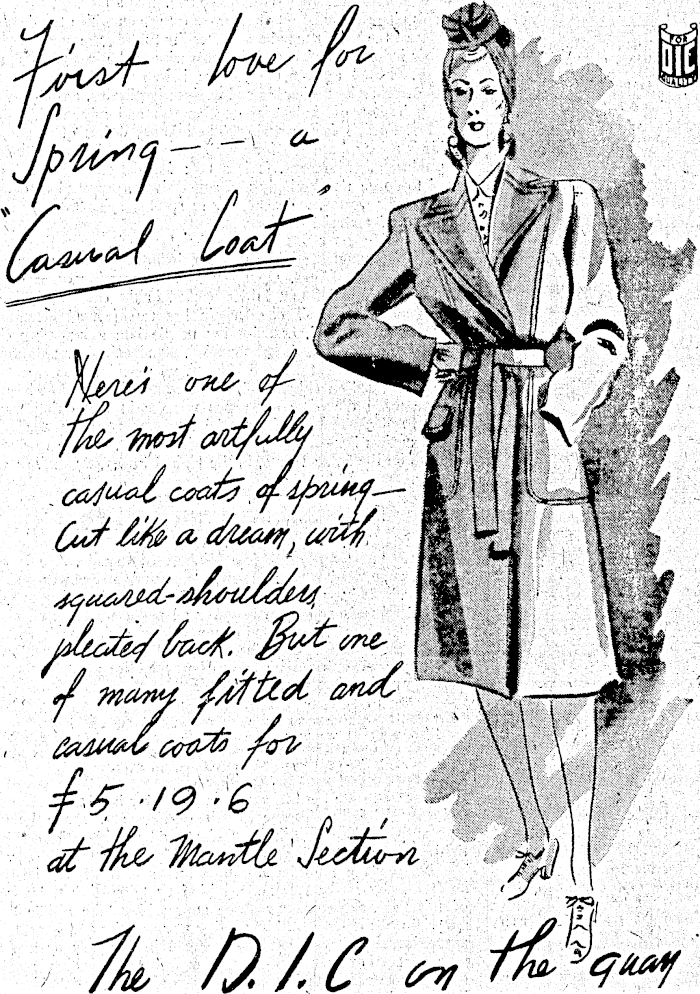 First love for
Spring - - a
"Casual Coat"
FOR
DIC
QUALITY
Here's one of
the most artfully
casual coats of spring—
Cut like a dream, with
squared-shoulders,
pleated back. But one
of many fitted and
casual coats for
£5.19.6
at the Mantle Section
The D.I.C on the quay